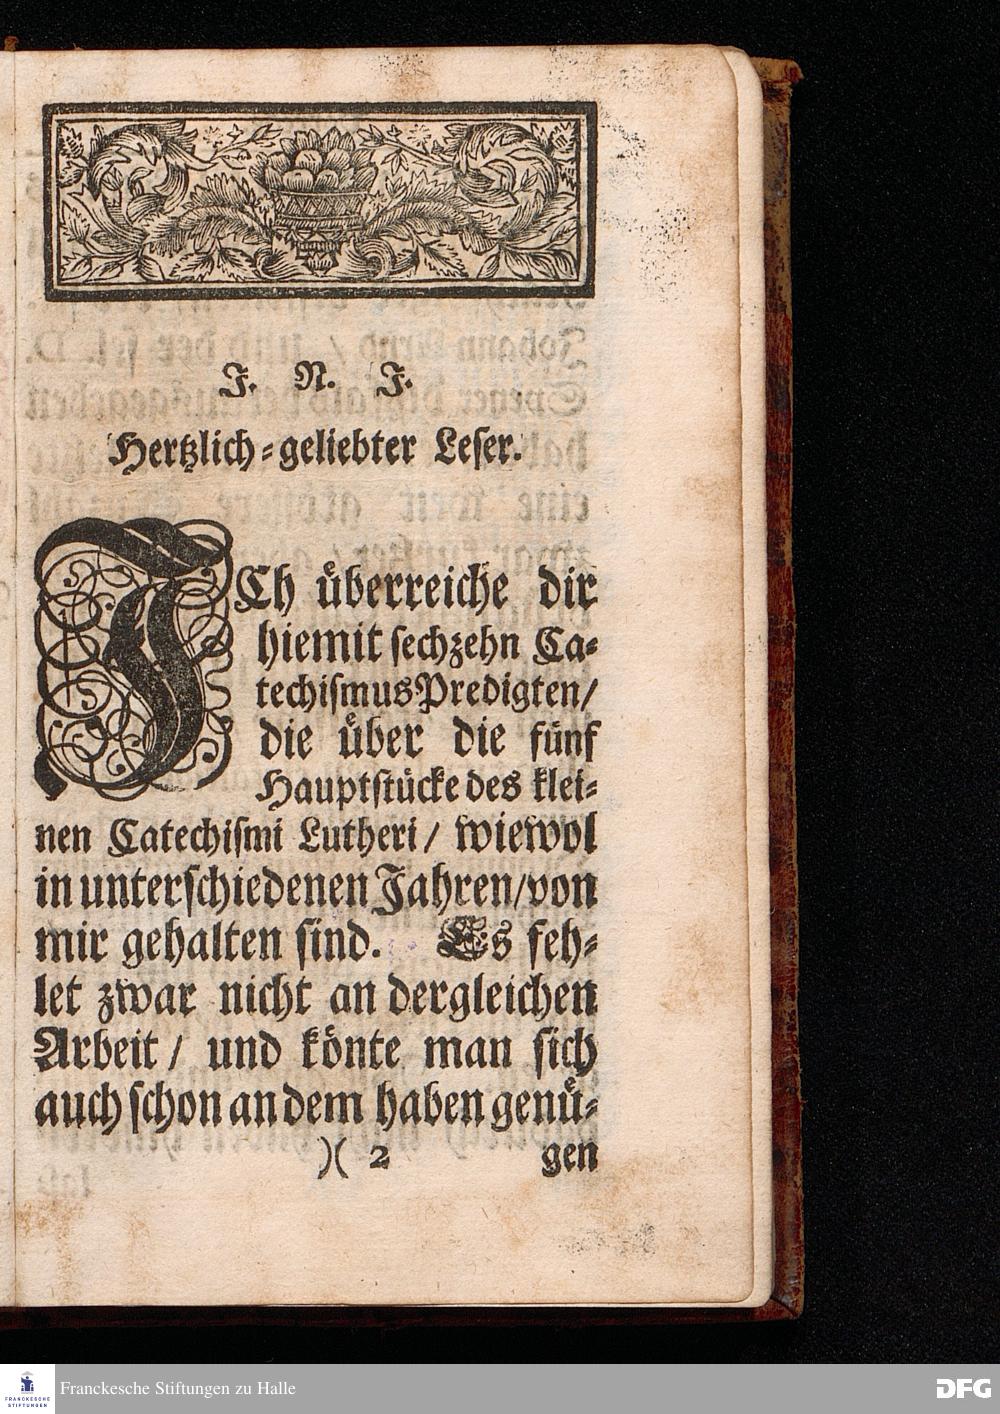 J. N. J.
Hertzlich-geliebter Leser.
JCh uͤberreiche dir
hiemit sechzehn Ca-
techiſmusPredigten/
die uͤber die fünf
Hauptſtücke des klei-
nen Catechiſmi Lutheri/ wiewol
in unterſchiedenen Jahren/von
mir gehalten ſind. Es feh-
let zwar nicht an dergleichen
Arbeit/ und koͤnte man ſich
auch ſchon an dem haben genuͤ-
)( 2 gen
FRANCKESCHE
STIFTUNGEN
Franckesche Stiftungen zu Halle
DFG